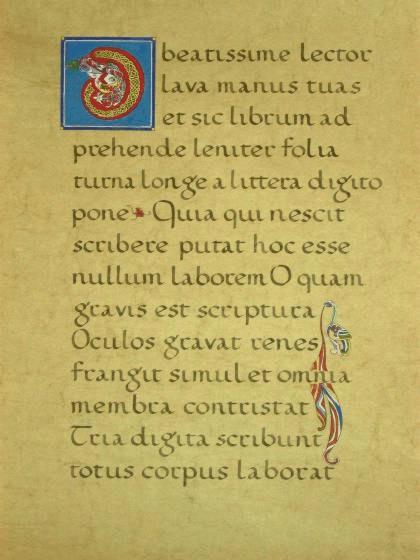 O beatissime lector
lava manus tuas
et sic librum ad
prehende leniter folia
turna longe a littera digito
pone Quia qui nescit
scribere putat hoc esse
nullum laborem O quam
gravis est scriptura
Oculos gravat renes
frangit simul et omnia
membra contristat
Tria digita scribunt
totus corpus laborat